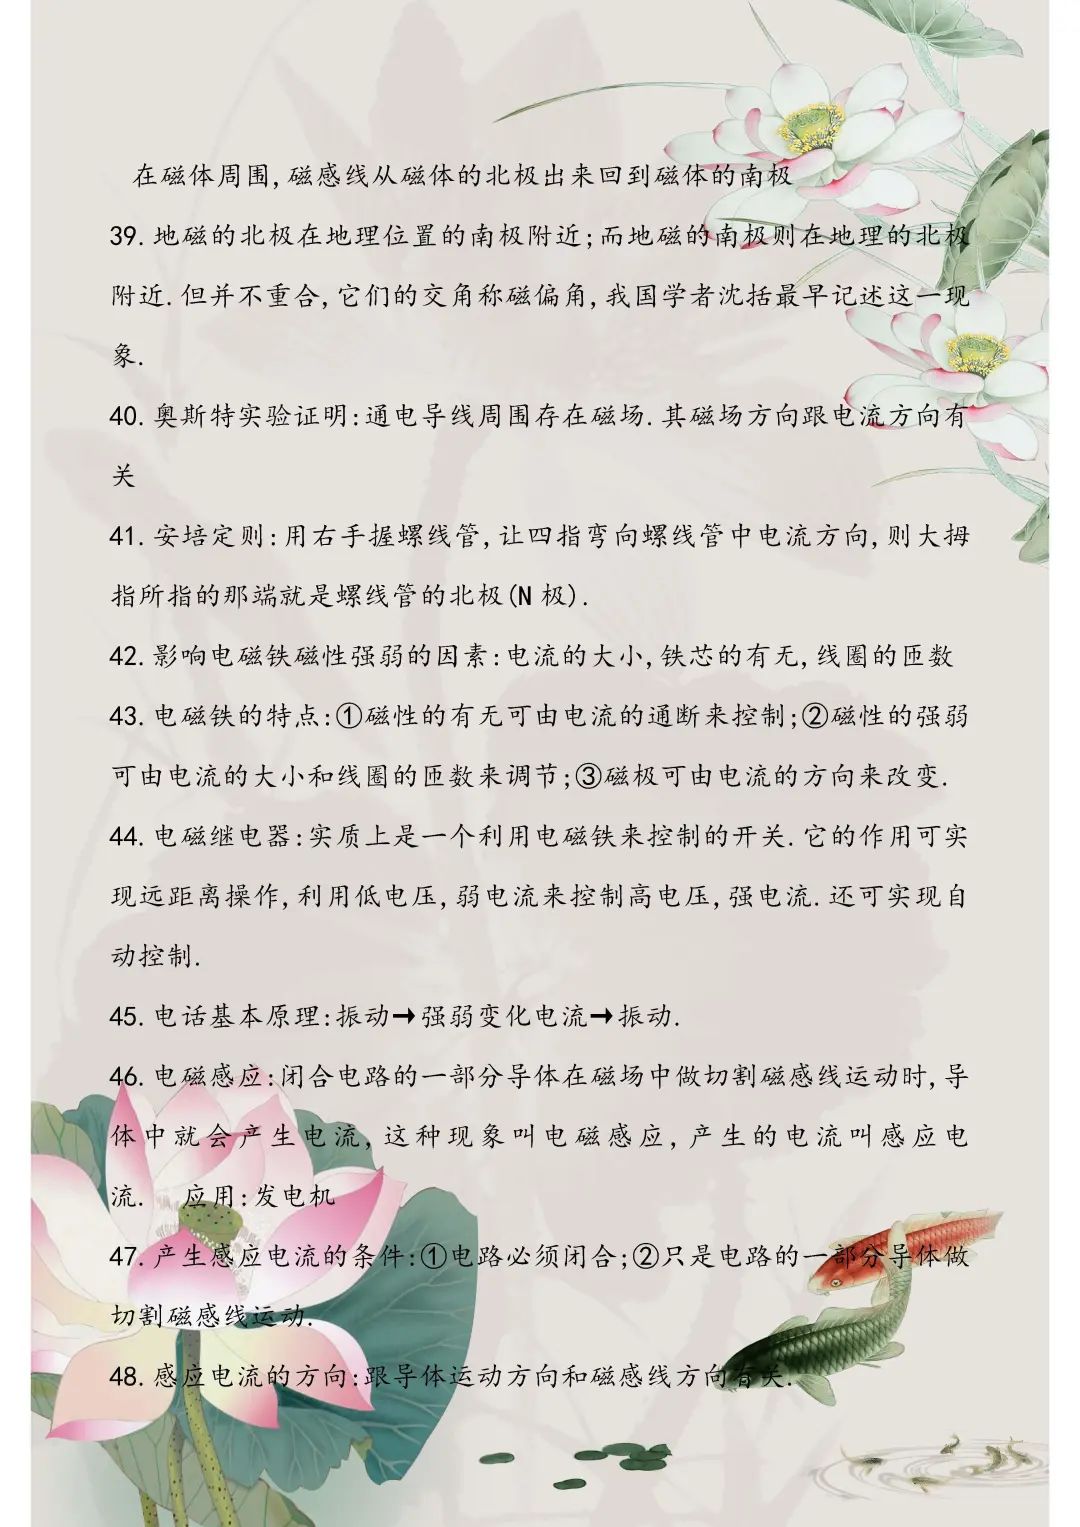 在磁体周围,磁感线从磁体的北极出来回到磁体的南极
39.地磁的北极在地理位置的南极附近;而地磁的南极则在地理的北极
附近.但并不重合,它们的交角称磁偏角,我国学者沈括最早记述这一现
象.
40.奥斯特实验证明:通电导线周围存在磁场.其磁场方向跟电流方向有
关
41.安培定则:用右手握螺线管,让四指弯向螺线管中电流方向,则大拇
指所指的那端就是螺线管的北极(N 极).
42.影响电磁铁磁性强弱的因素:电流的大小,铁芯的有无,线圈的匝数
43.电磁铁的特点:①磁性的有无可由电流的通断来控制;②磁性的强弱
可由电流的大小和线圈的匝数来调节;③磁极可由电流的方向来改变.
44.电磁继电器:实质上是一个利用电磁铁来控制的开关.它的作用可实
现远距离操作,利用低电压,弱电流来控制高电压,强电流.还可实现自
动控制.
45.电话基本原理:振动→强弱变化电流→振动.
46.电磁感应:闭合电路的一部分导体在磁场中做切割磁感线运动时,导
体中就会产生电流,这种现象叫电磁感应,产生的电流叫感应电
流. 应用:发电机
47.产生感应电流的条件:①电路必须闭合;②只是电路的一部分导体做
切割磁感线运动.
48.感应电流的方向:跟导体运动方向和磁感线方向有关.